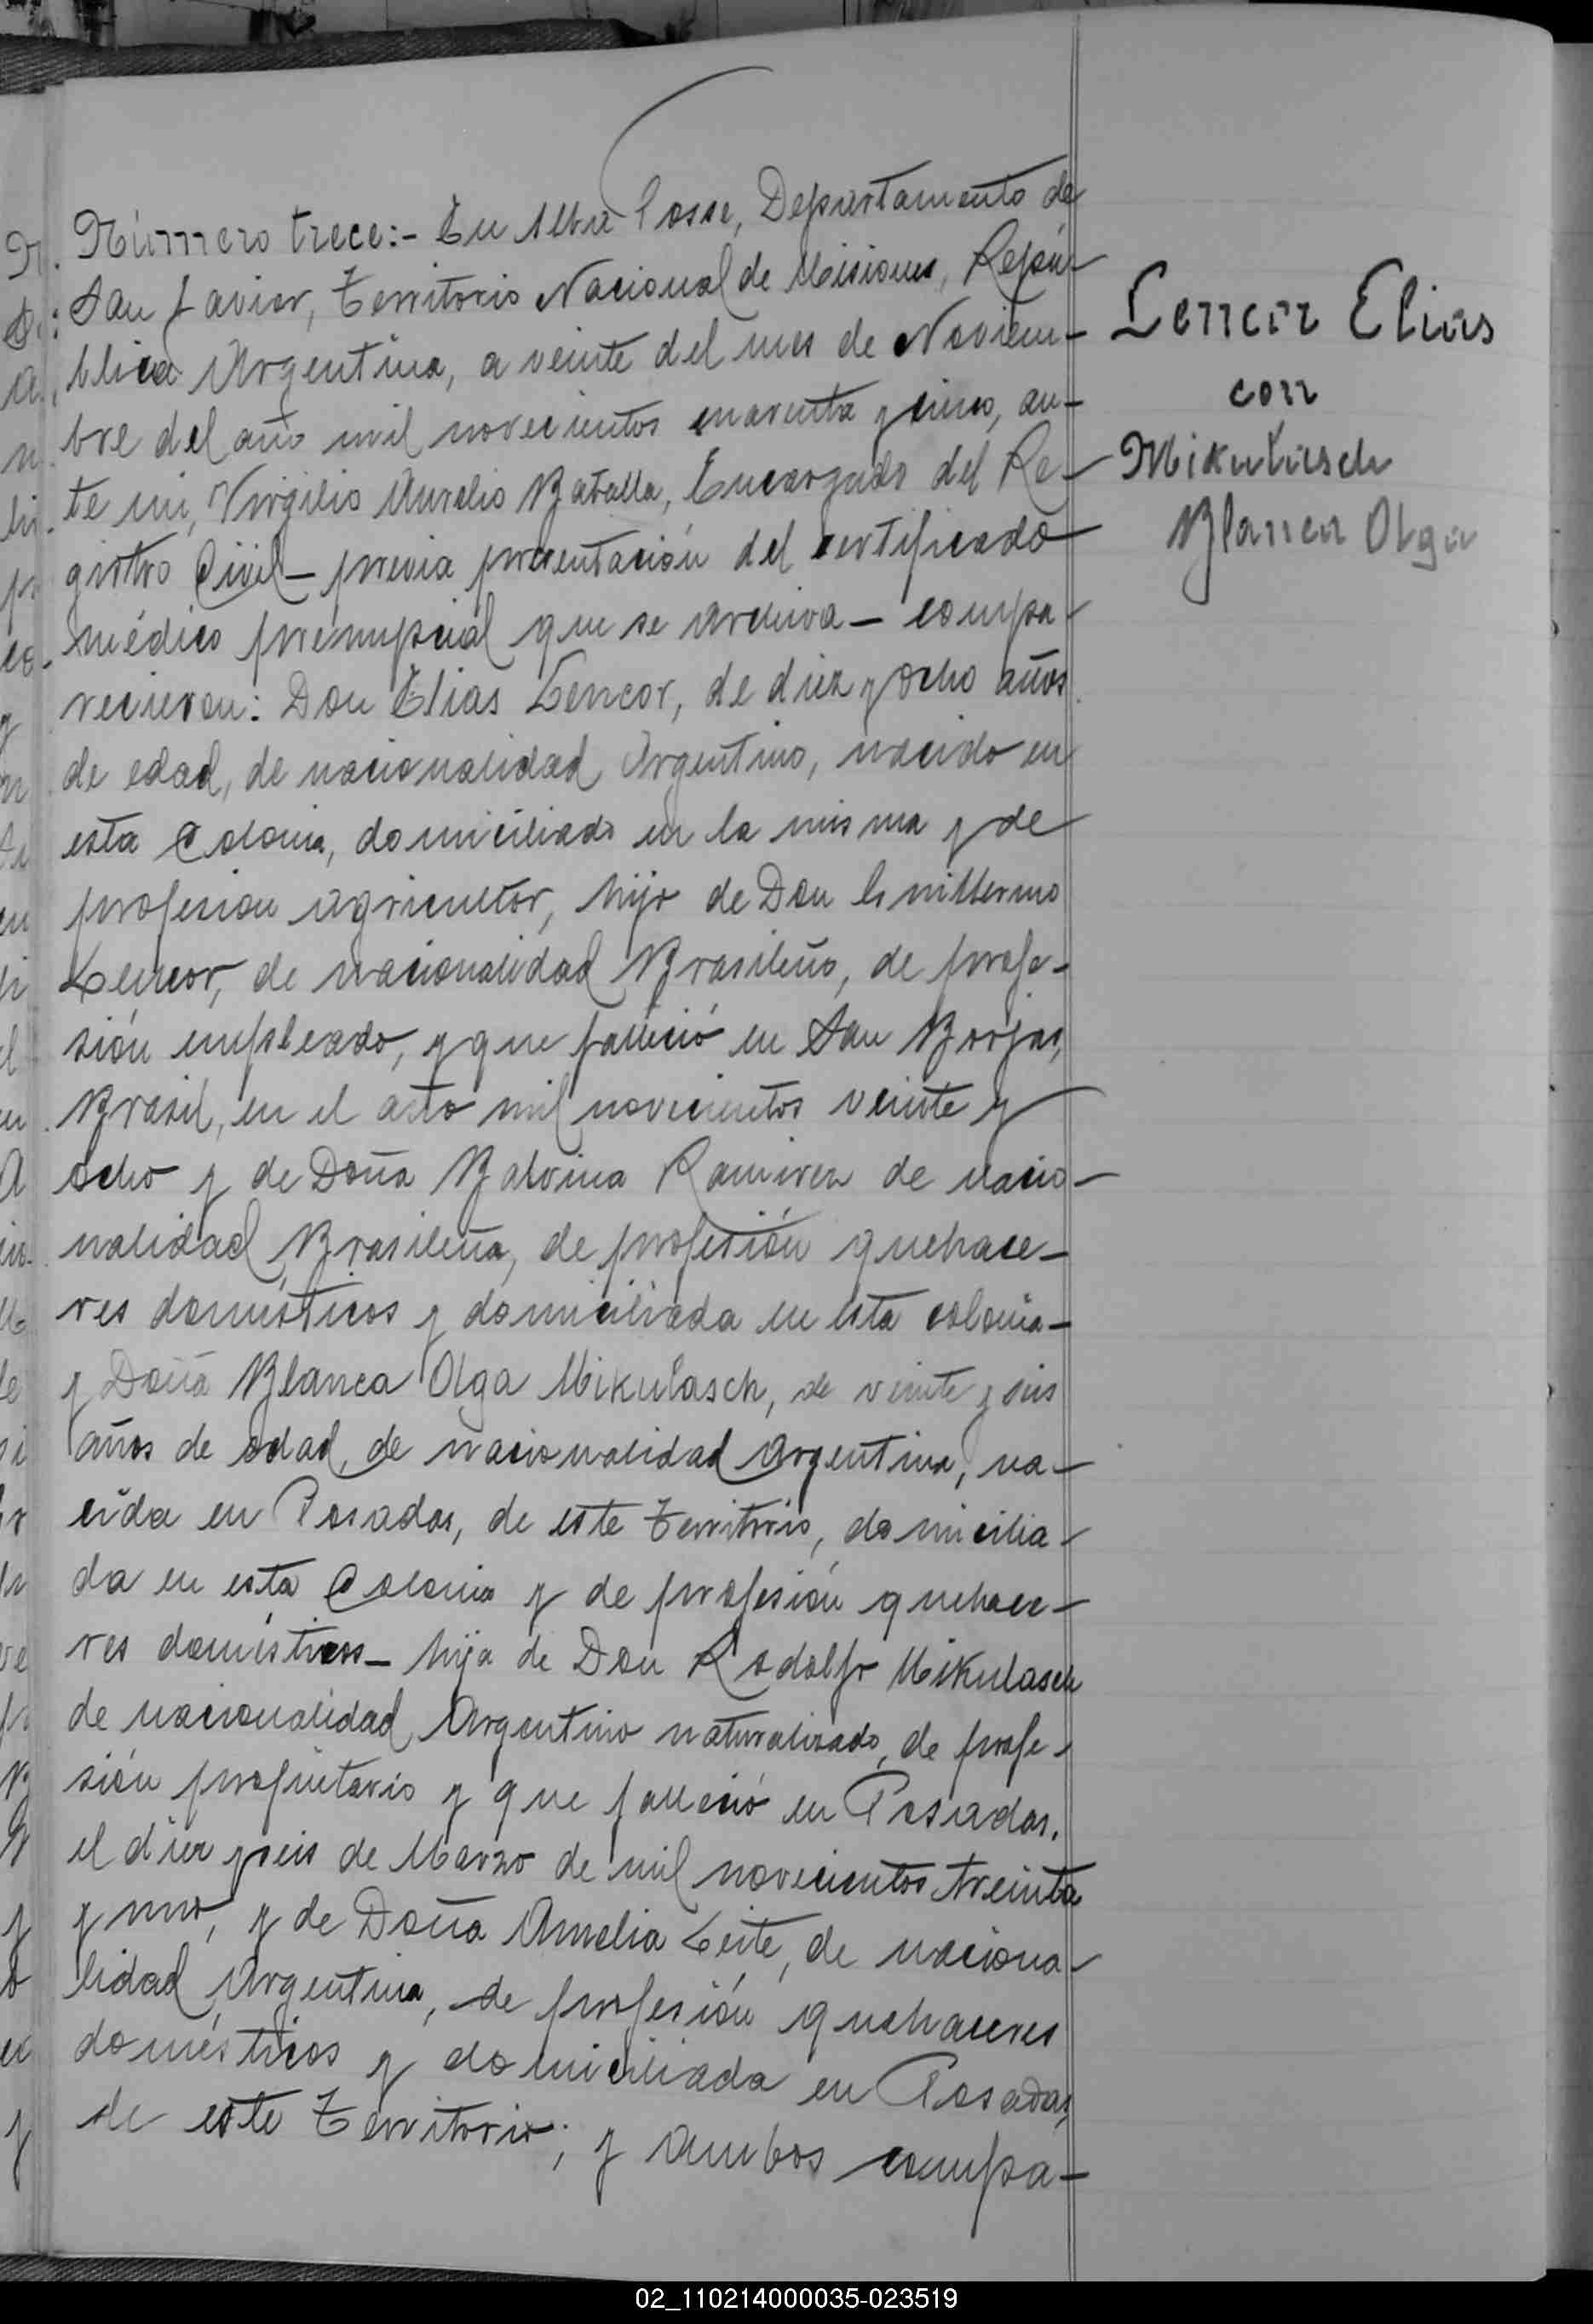 Número trece:- En Alba Posse, Departamento de
San Javier, Territorio Nacional de Misiones, Repú-
blica Argentina, a veinte del mes de Noviem-
bre del año mil novecientos cuarenta y cinco, an-
te mi, Virgilio Aurelio Batalla, Encargado del Re-
gistro Civil - previa presentación del certificado
médico prenupcial que se archiva - compa-
recieron: Don Elias Lencor, de diez y ocho años
de edad, de nacionalidad Argentino, nacido en
esta Colonia, domiciliado en la misma y de
profesion agricultor, hijo de Don Guillermo
Lencor, de nacionalidad Brasileño, de profe-
sión empleado, y que falleció en San Borjas,
Brasil, en el año mil novecientos veinte y
ocho y de Doña Balvina Ramirez de nacio-
nalidad Brasileña, de profesión quehace-
res domésticos y domiciliada en esta colonia-
y Doña Blanca Olga Mikulasch, de veinte y seis
años de edad, de nacionalidad Argentina, na-
cida en Posadas, de este Territorio, domicilia-
da en esta Colonia y de profesión quehace-
res domésticos - hija de Don Rodolfo Mikulasch
de nacionalidad Argentino naturalizado, de profe-
sión propietario y que falleció en Posadas.
el diez y seis de Marzo de mil novecientos treinta
y uno, y de Doña Amelia Leite, de naciona-
lidad Argentina, de profesión quehaceres
domésticos y domiciliada en Posadas,
de este Territorio; y ambos compa-
Lencor Elias
con
Mikulasch
Blanca Olga
02_110214000035-023519